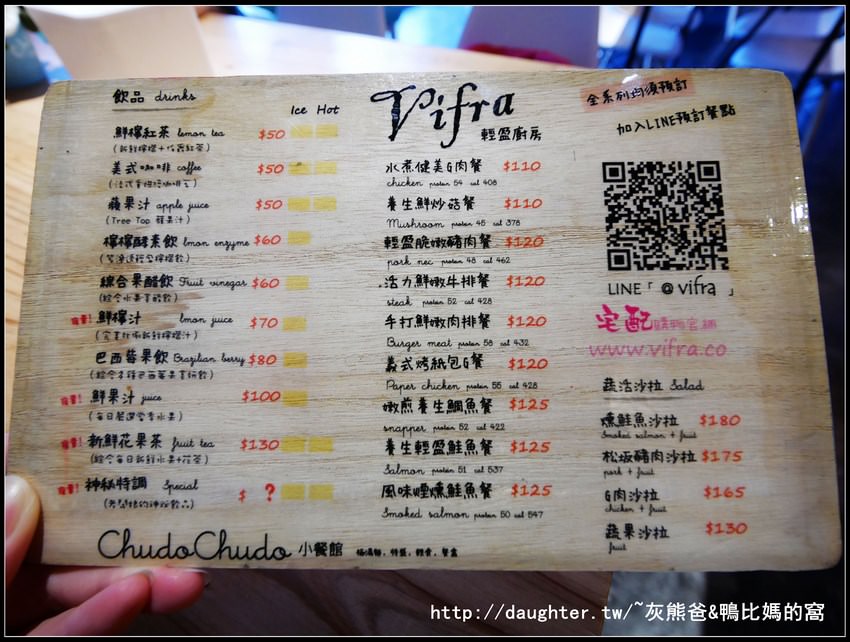 飲品 drinks
Ice Hot
鮮檸紅茶 lemon tea $50
美式咖啡 coffee $50
蘋果汁 apple juice $50
(Tree Top 蘋果汁)
檸檬酵素飲 lmon enzyme $60
綜合果醋飲 Fruit vinegar $60
(綜合水果果醋飲)
鮮檸汁 lmon juice $70
巴西莓果飲 Brazilian berry $80
鮮果汁 juice $100
新鮮花果茶 fruit tea $130
(綜合每日新鮮水果+花茶)
神秘特調 Special $ ?
ChudoChudo 小餐館
Vifra
輕盈廚房
水煮健美G肉餐 $110
chicken protein 54 cal 408
養生鮮炒菇餐 $110
Mushroom protein 45 cal 378
輕盈脆嫩豬肉餐 $120
pork nec protein 48 cal 462
活力鮮嫩牛排餐 $120
steak protein 52 cal 428
手打鮮嫩肉排餐 $120
Burger meat protein 58 cal 432
義式烤紙包G餐 $120
Paper chicken protein 55 cal 428
嫩煎養生鯛魚餐 $125
snapper protein 52 cal 422
養生輕盈鮭魚餐 $125
Salmon protein 51 cal 537
風味煙燻鮭魚餐 $125
Smoked salmon protein 50 cal 547
全系列均須預訂
加入LINE預訂餐點
LINE「@vifra」
宅配購物官網
www.vifra.co
蔬活沙拉 Salad
燻鮭魚沙拉 $180
Smoked salmon + fruit
松坂豬肉沙拉 $175
pork + fruit
G肉沙拉 $165
chicken + fruit
蔬果沙拉 $130
fruit
http://daughter.tw/~灰熊爸&鴨比媽的窩